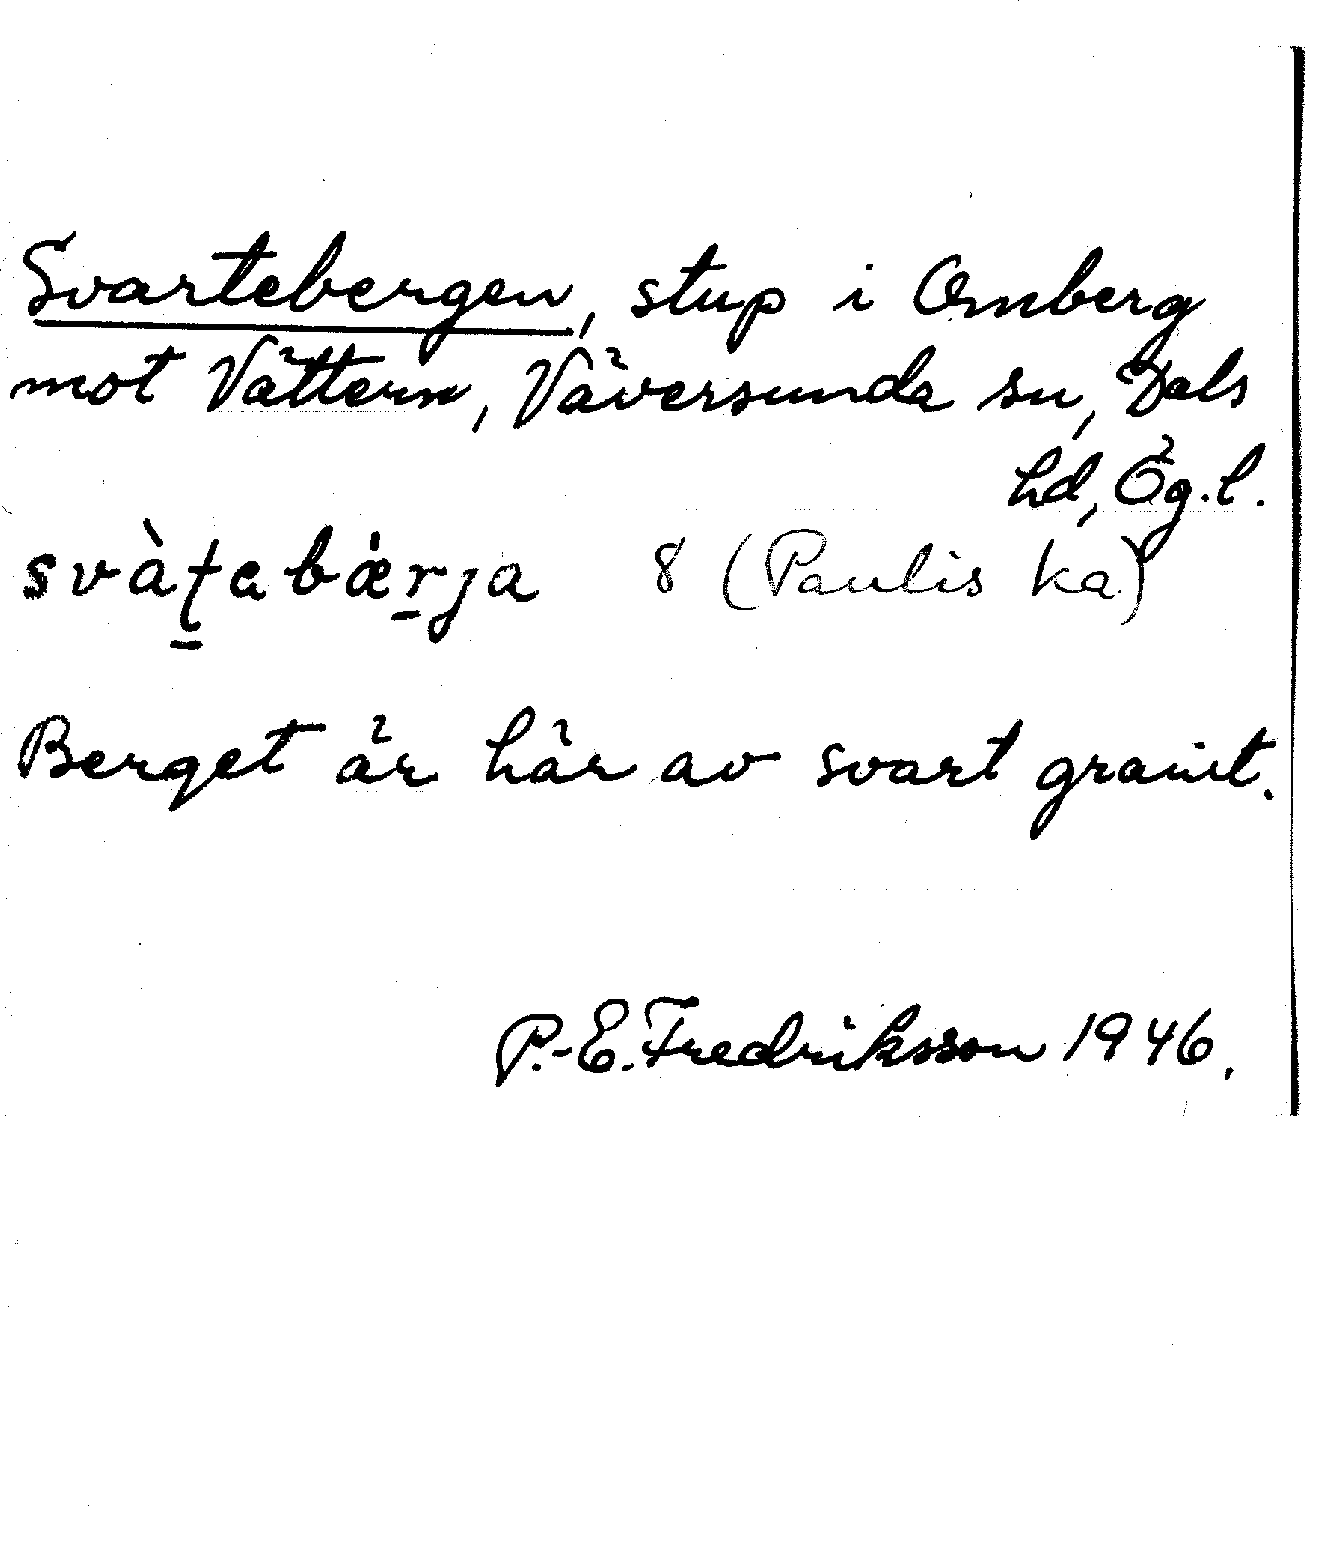 Svartebergen, stup i Omberg
mot Vättern, Väversunda sn, Dals
hd, Ög.l.
svàʈebæ̀rja 8 (Paulis ka)
Berget är här av svart granit.
P.-E. Fredriksson 1946.